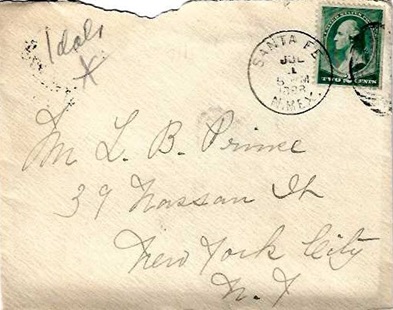 Idols
X
SANTA FE
JUL
1
5 PM
1888
N.MEX.
TWO CENTS
Mr L. B. Prince
39 Nassau St
New York City
N. Y